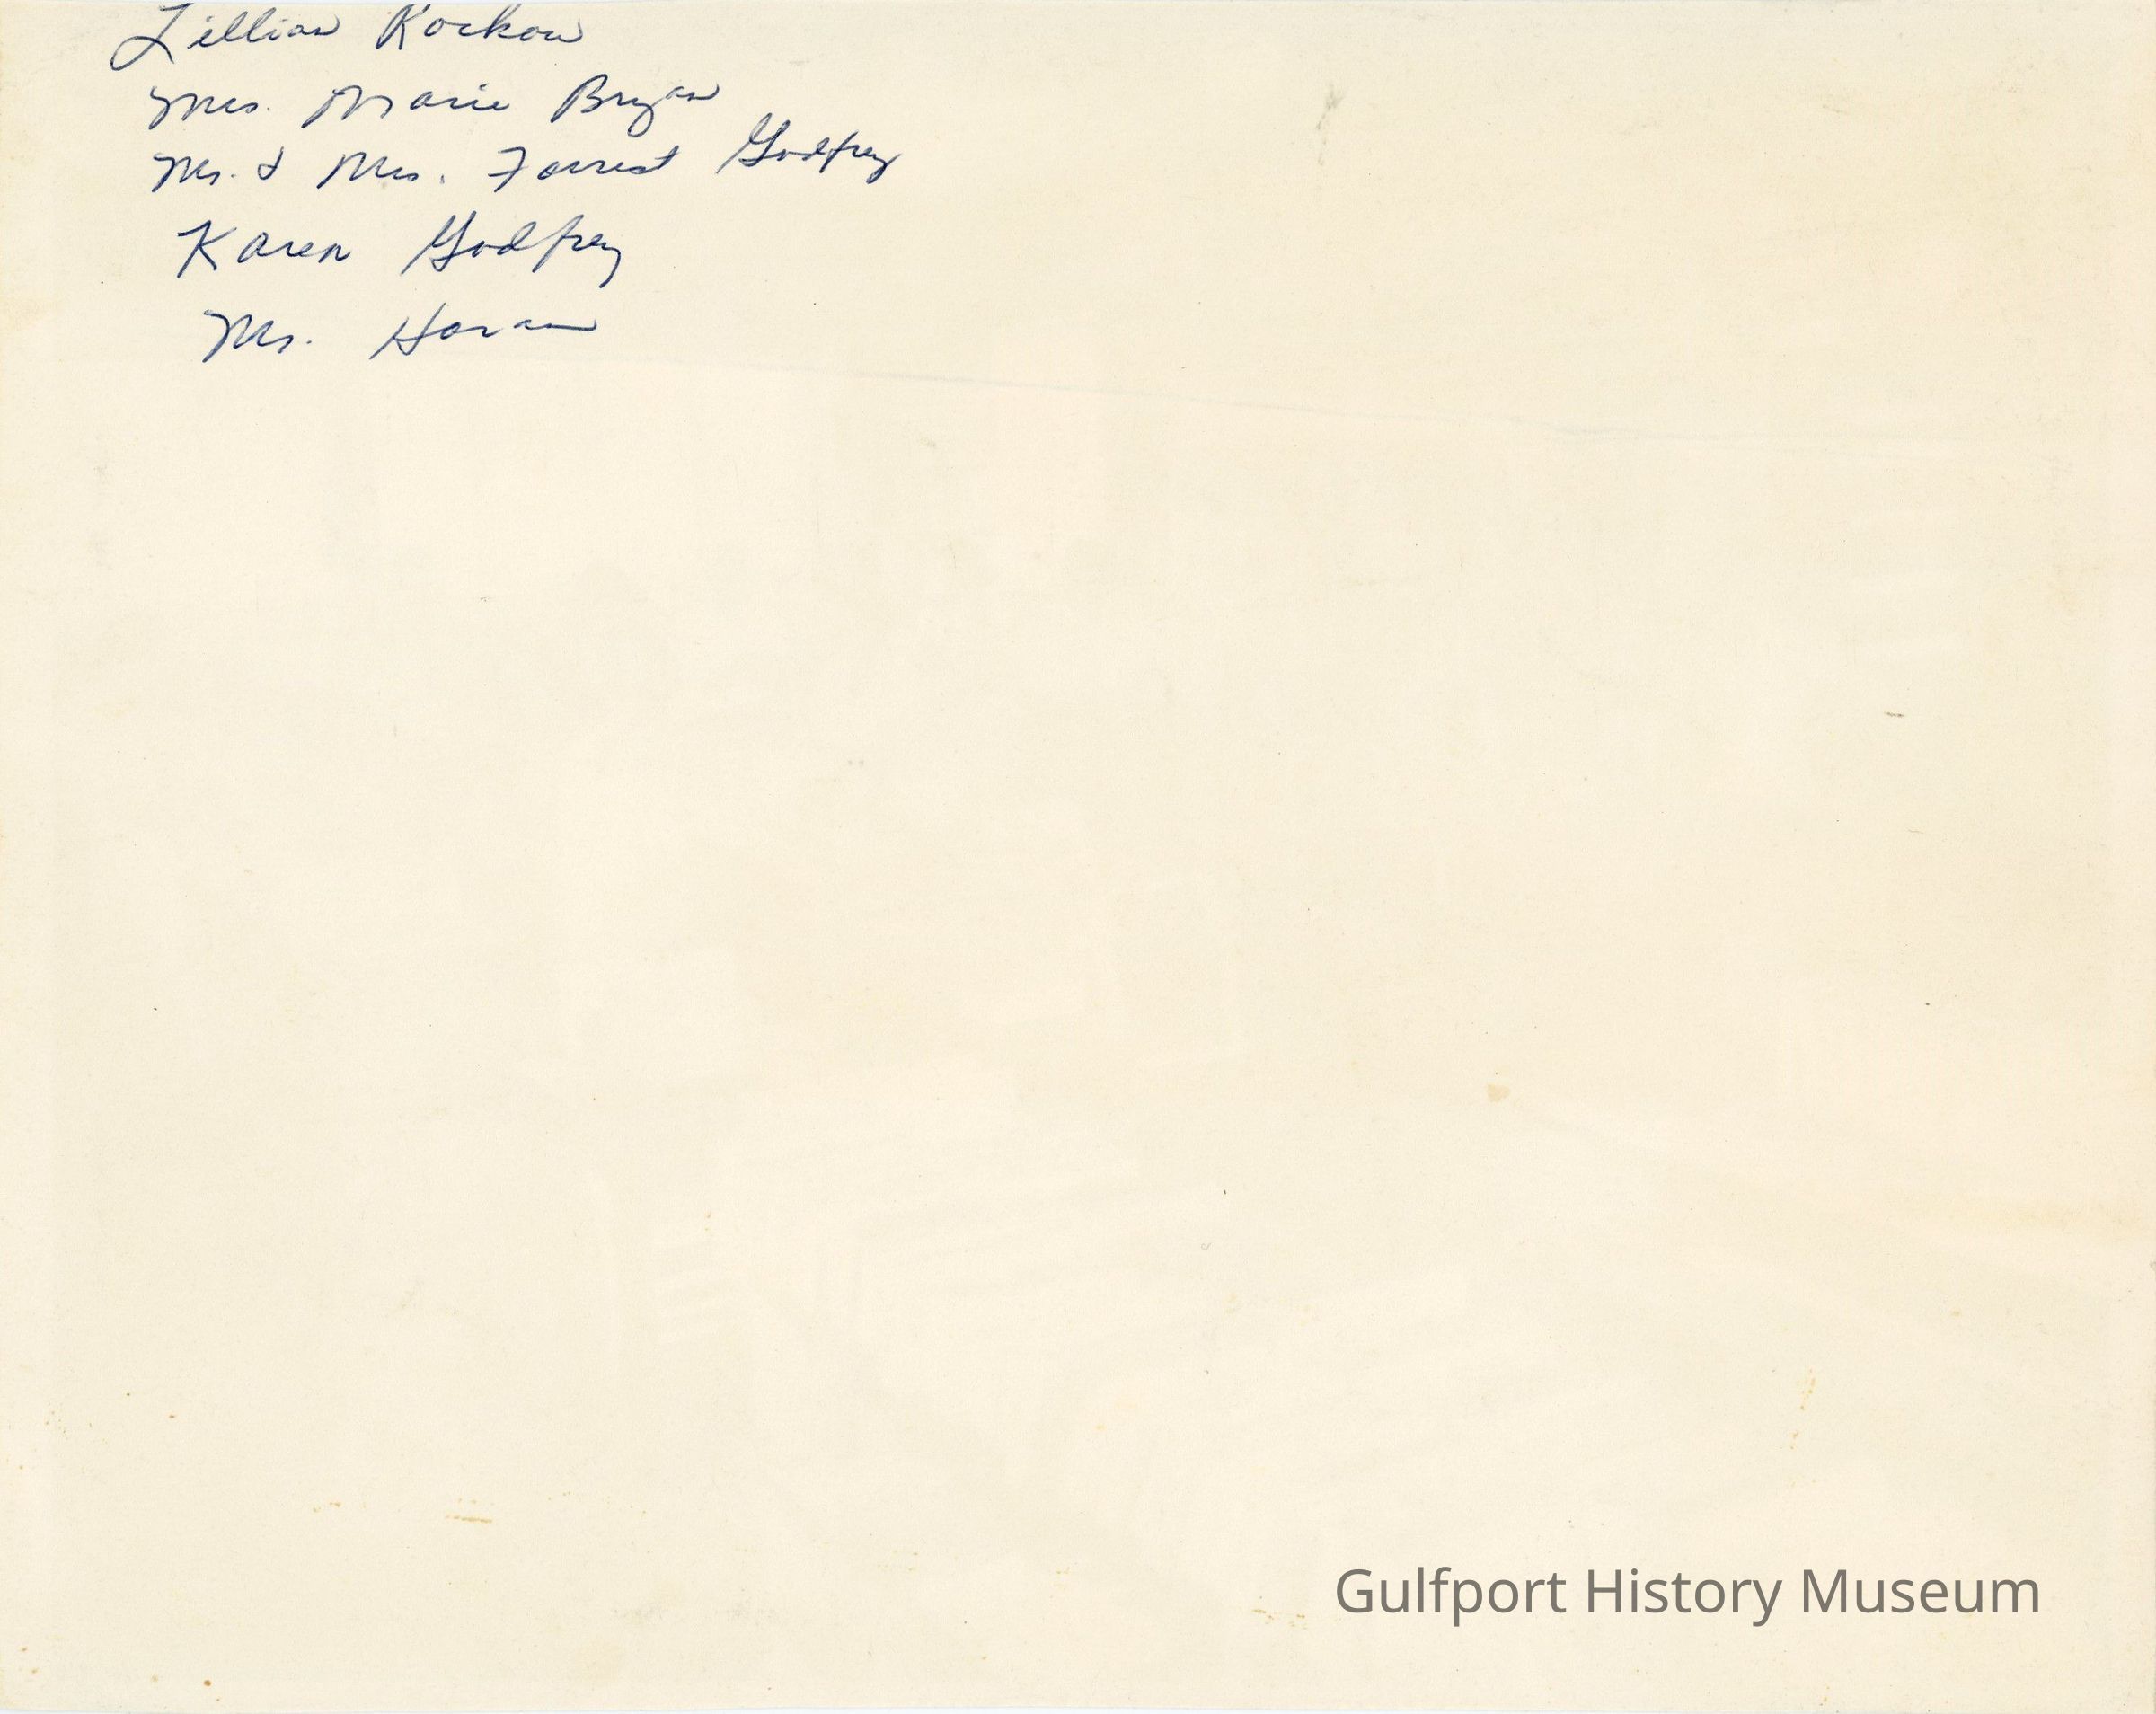 Lillian Rockow
Mrs. Marie Bryan
Mr. & Mrs. Forrest Godfrey
Karen Godfrey
Mr. Horan
Gulfport History Museum